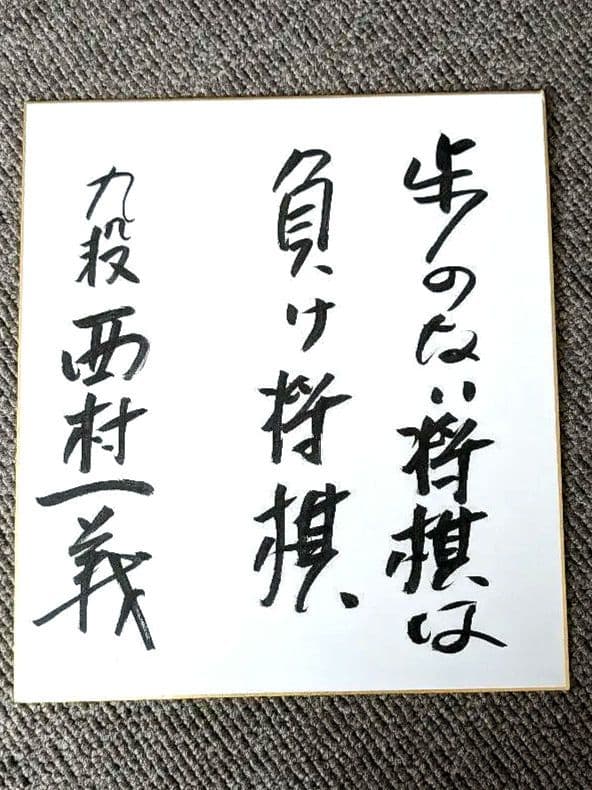 歩のない将棋は
負け将棋
九段 西村一義